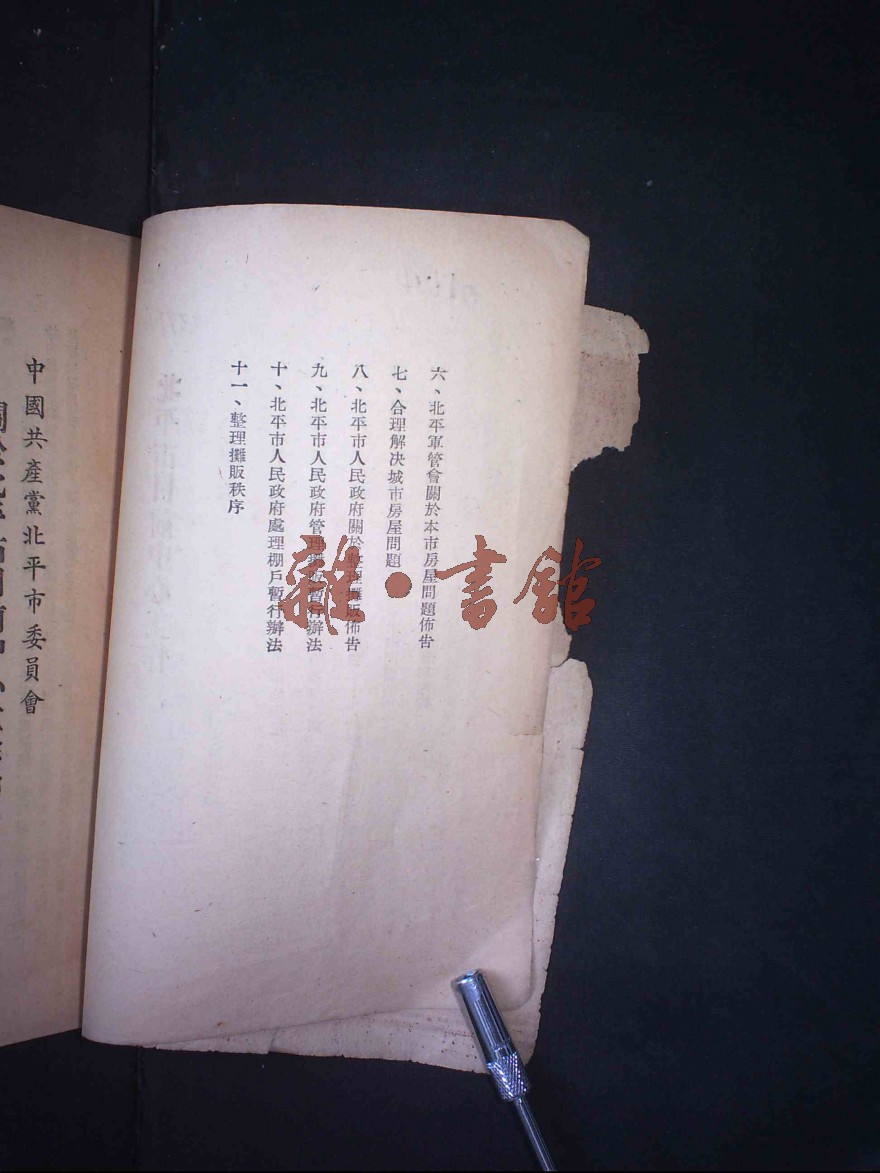 六、北平軍管會關於本市房屋問題佈告
七、合理解决城市房屋問題
八、北平市人民政府關於整理攤販佈告
九、北平市人民政府管理攤販暫行辦法
十、北平市人民政府處理棚戶暫行辦法
十一、整理攤販秩序
中國共產黨北平市委員會
雜·書館